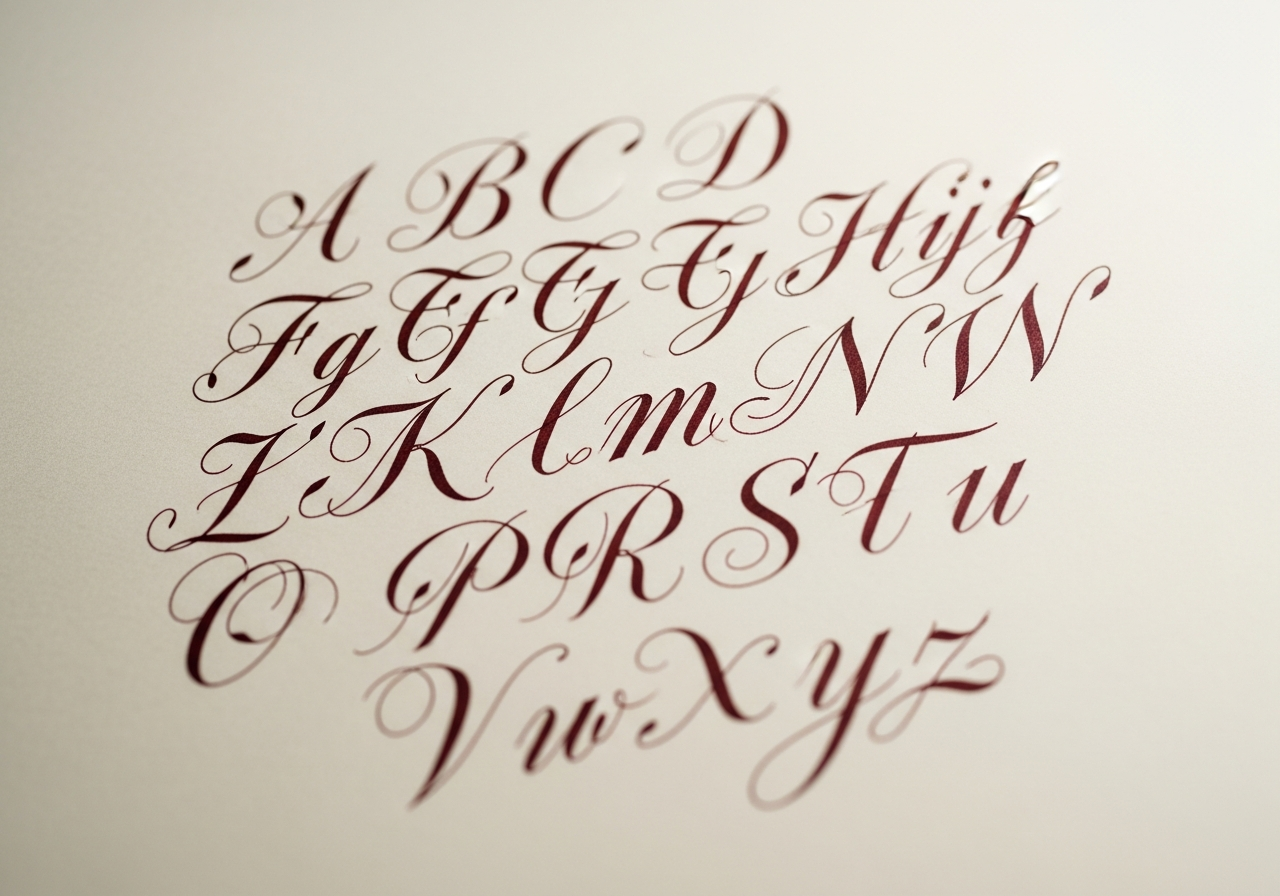 A B C D
F g E f G G H i j k
L K l m N W
O P R S T u
V w X y z